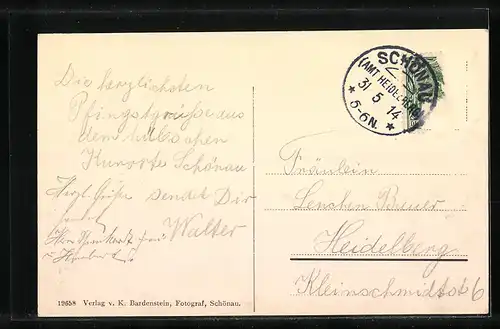 Die herzlichsten
Pfingstgrüße aus
dem hübschen
Kurorte Schönau
sendet Dir
Walter
Herzl. Grüße
SCHÖNAU
(AMT HEIDELBERG)
31 5 14
* 5-6N. *
Fräulein
Lenchen Bauer
Heidelberg
Kleinschmidtstr 6
19658 Verlag v. K. Bardenstein, Fotograf, Schönau.